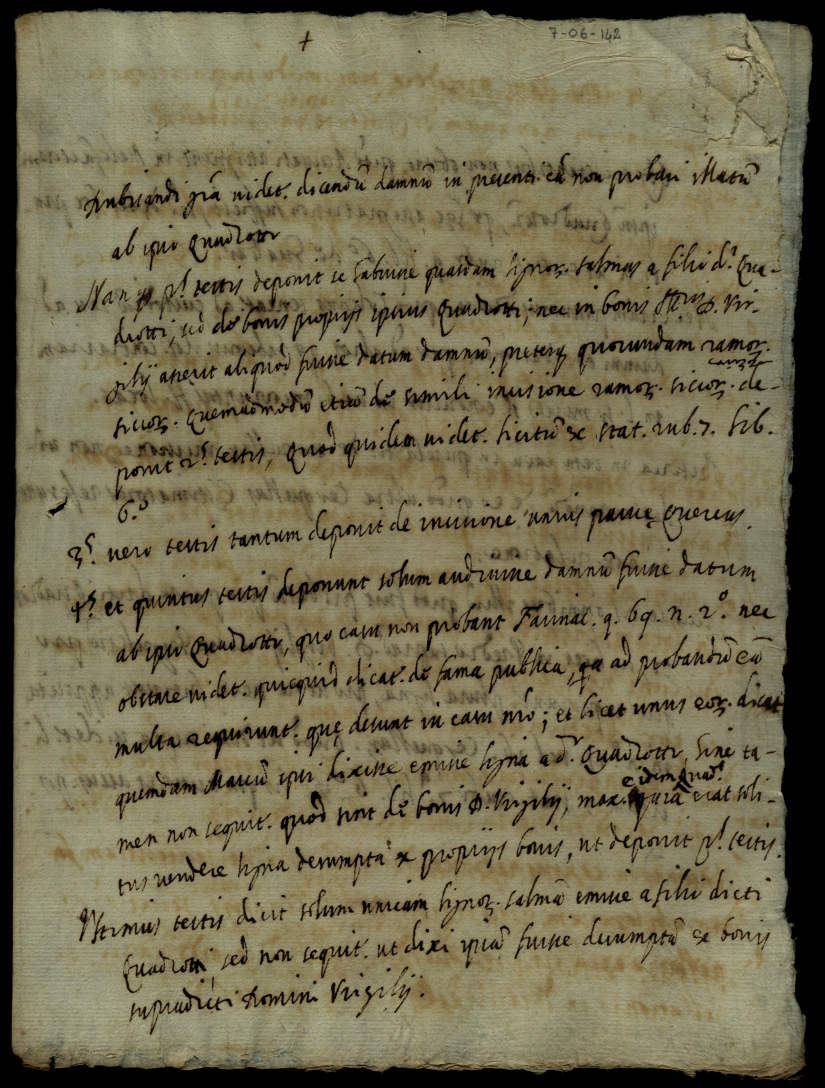 7-06-142
+
Ambigendi grã videt. dicendũ damnũ in presenti cã non probari illatũ
ab ipso Quadrotto
Nam pꝰ testis deponit se habuisse quasdam lignoꝝ. salmas a filio d.ⁱ Qua-
drotti, sed de bonis proprijs ipsius Quadrotti; nec in bonis D. Vir-
gilij asserit aliquod fuisse datum damnũ, preterq̃ quorundam ramoꝝ.
siccoꝝ. quemadmodũ etiã de simili incisione ramoꝝ. siccoꝝ. de-
ponit 2.ˢ testis, Quod quidem videt. licitũ ex stat. rub. 7. lib.
6.º
3.ˢ vero testis tantum deponit de incisione unius parvę Quercus.
4.ˢ et quintus testis deponunt solum audivisse damnũ fuisse datum
ab ipso Quadrotto, quo casu non probant Farinac. q. 69. n. 2.º nec
obstare videt. quicquid dicat. de fama publica, qa ad probandũ eã
multa requirunt. quę desunt in casu nro; et licet unus eoꝝ. dicat
quemdam Marcũ ipsi dixisse emisse ligna a d.º Quadrotto, sine ta-
men non sequit. quod sint de bonis D. Virgilij, max. quia eidem Quad.ˢ erat soli-
tus vendere ligna desumpta ex proprijs bonis, ut deponit pꝰ testis.
Ultimus testis dicit solum unicam lignoꝝ. salmã emisse a filio dicti
Quadrotti sed non sequit. ut dixi ipsã fuisse desumptã ex bonis
supradicti Domini Virgilij.